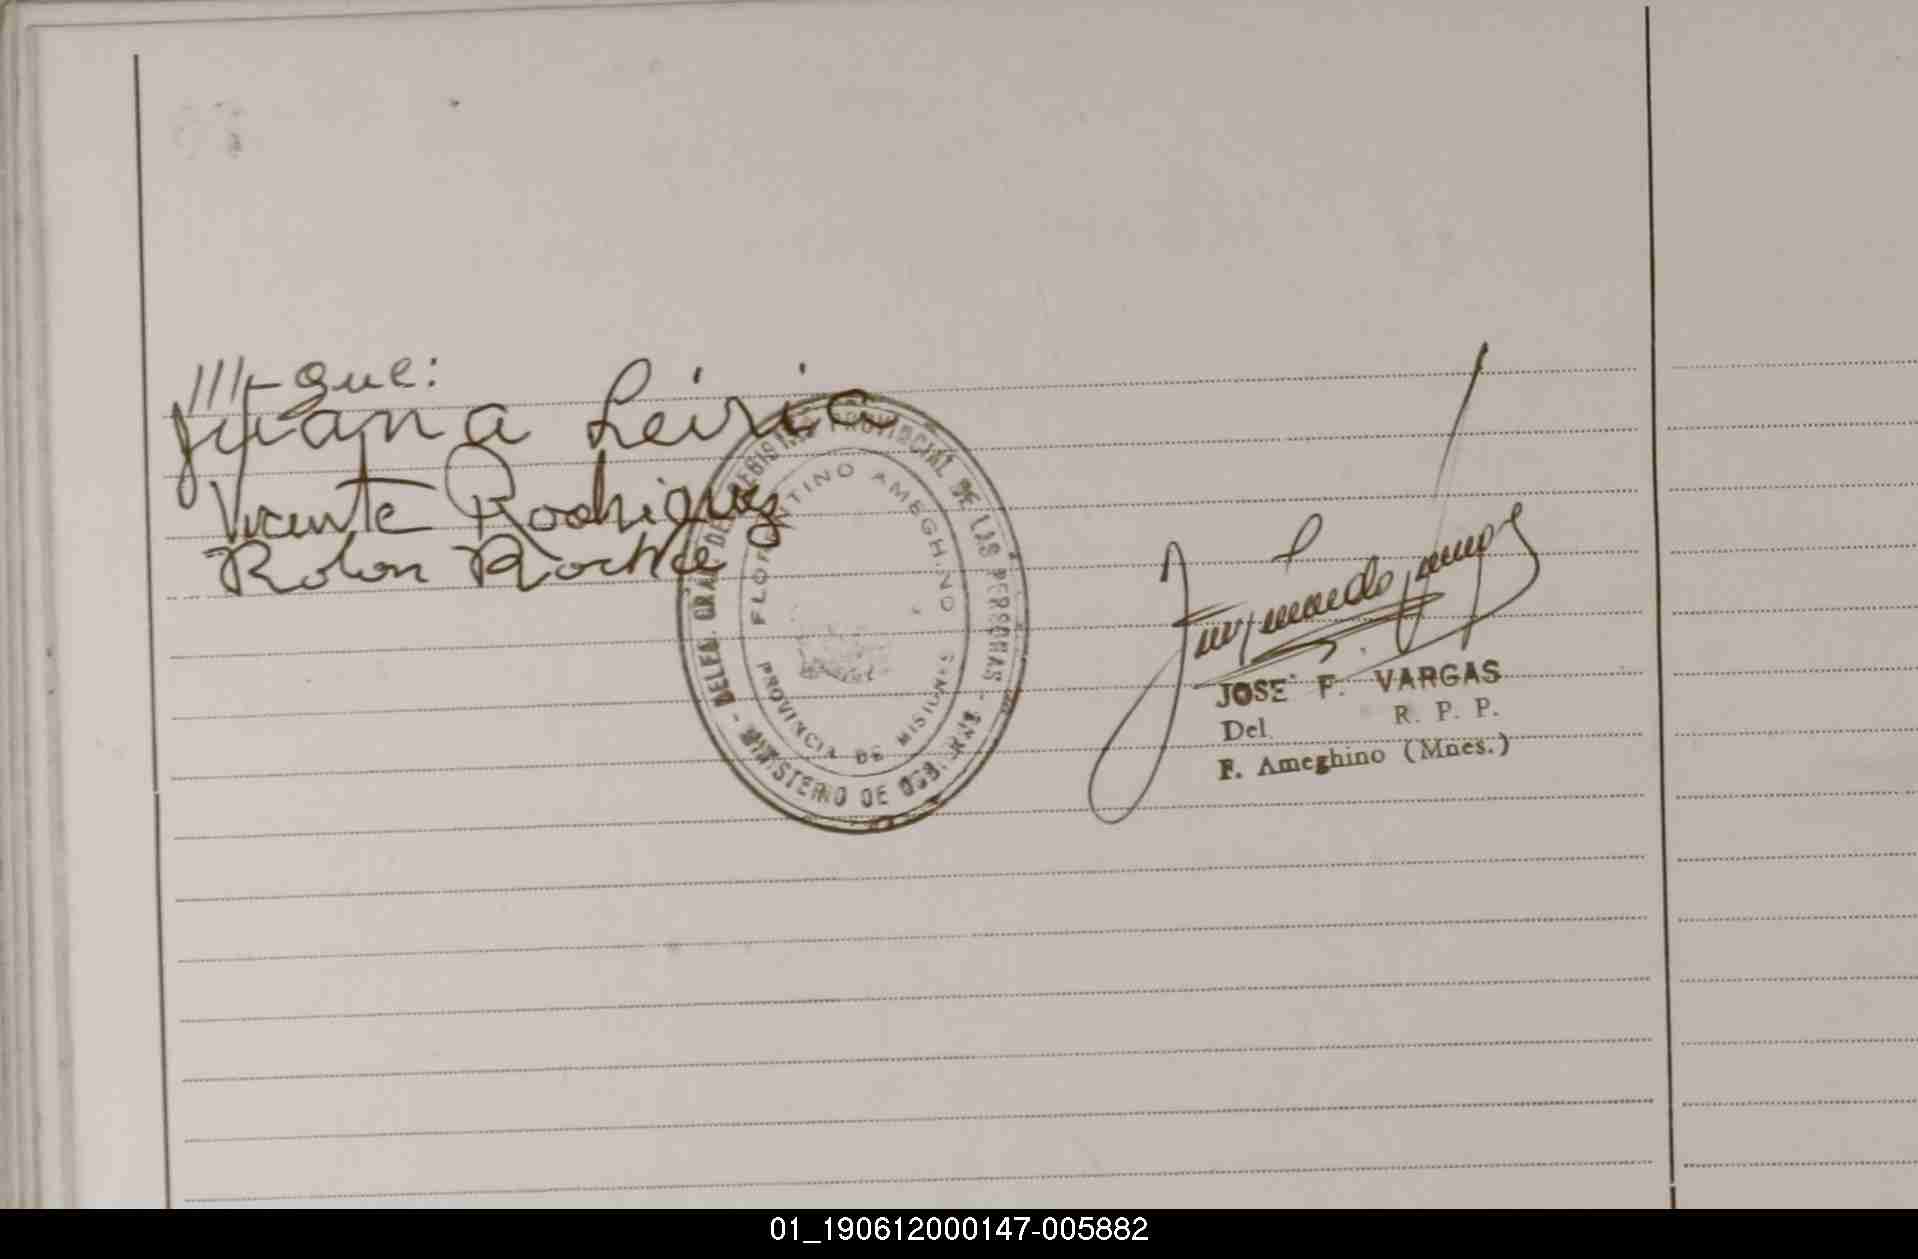 ///-que:
Juana Leiria
Vicente Rodriguez
Rolon Roche
DELEG. GRAL. DEL REGISTRO PROVINCIAL DE LAS PERSONAS
FLORENTINO AMEGHINO
PROVINCIA DE MISIONES
MINISTERIO DE GOB.
JOSE F. VARGAS
Del. R. P. P.
F. Ameghino (Mnes.)
01_190612000147-005882